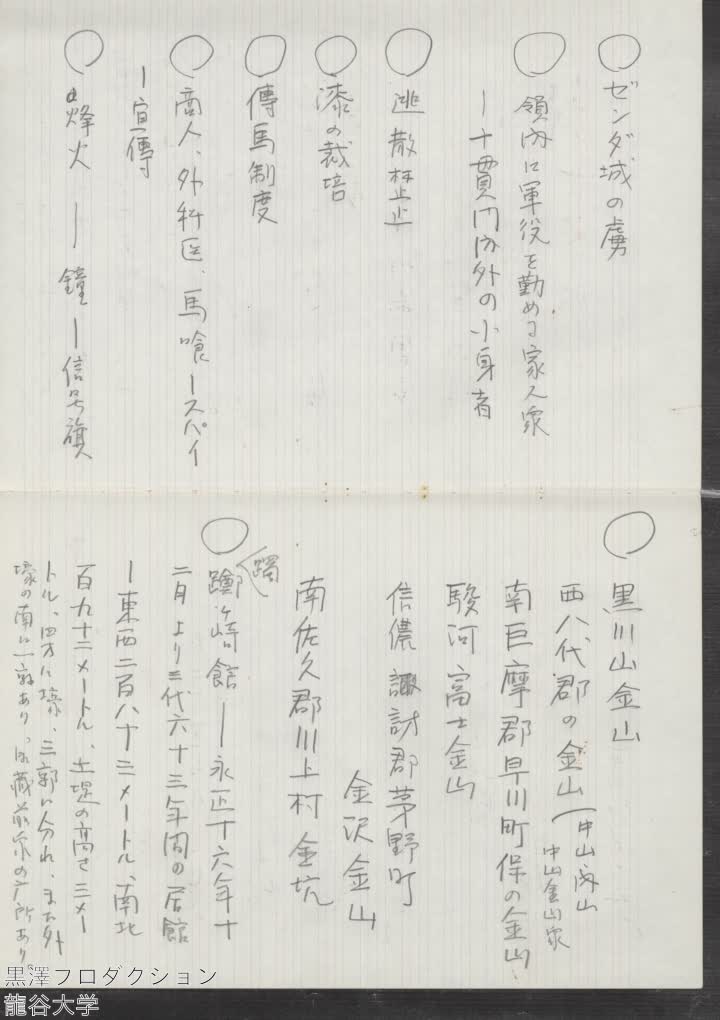 ゼンダ城の虜
領内に軍役を勤める家人衆
ー十貫門内外の小身者
逃散禁止
漆の栽培
傳馬制度
商人、外科医、馬喰ースパイ
ー宣傳
烽火ー鐘ー信号旗
黒川山金山
西八代郡の金山(中山内山
中山金山衆
南巨摩郡早川町保の金山
駿河富士金山
信儂諏訪郡茅野町
金沢金山
南佐久郡川上村金坑
躑
躑ヶ崎館ー永正十六年十
二月より三代六十三年間の居館
ー東西二百八十三メートル、南北
百九十二メートル、土堤の高さ三メー
トル、四方に壕、三郭に分れ、また外
壕の南に一郭あり。御蔵前の庁所あり。
黒澤プロダクション
龍谷大学